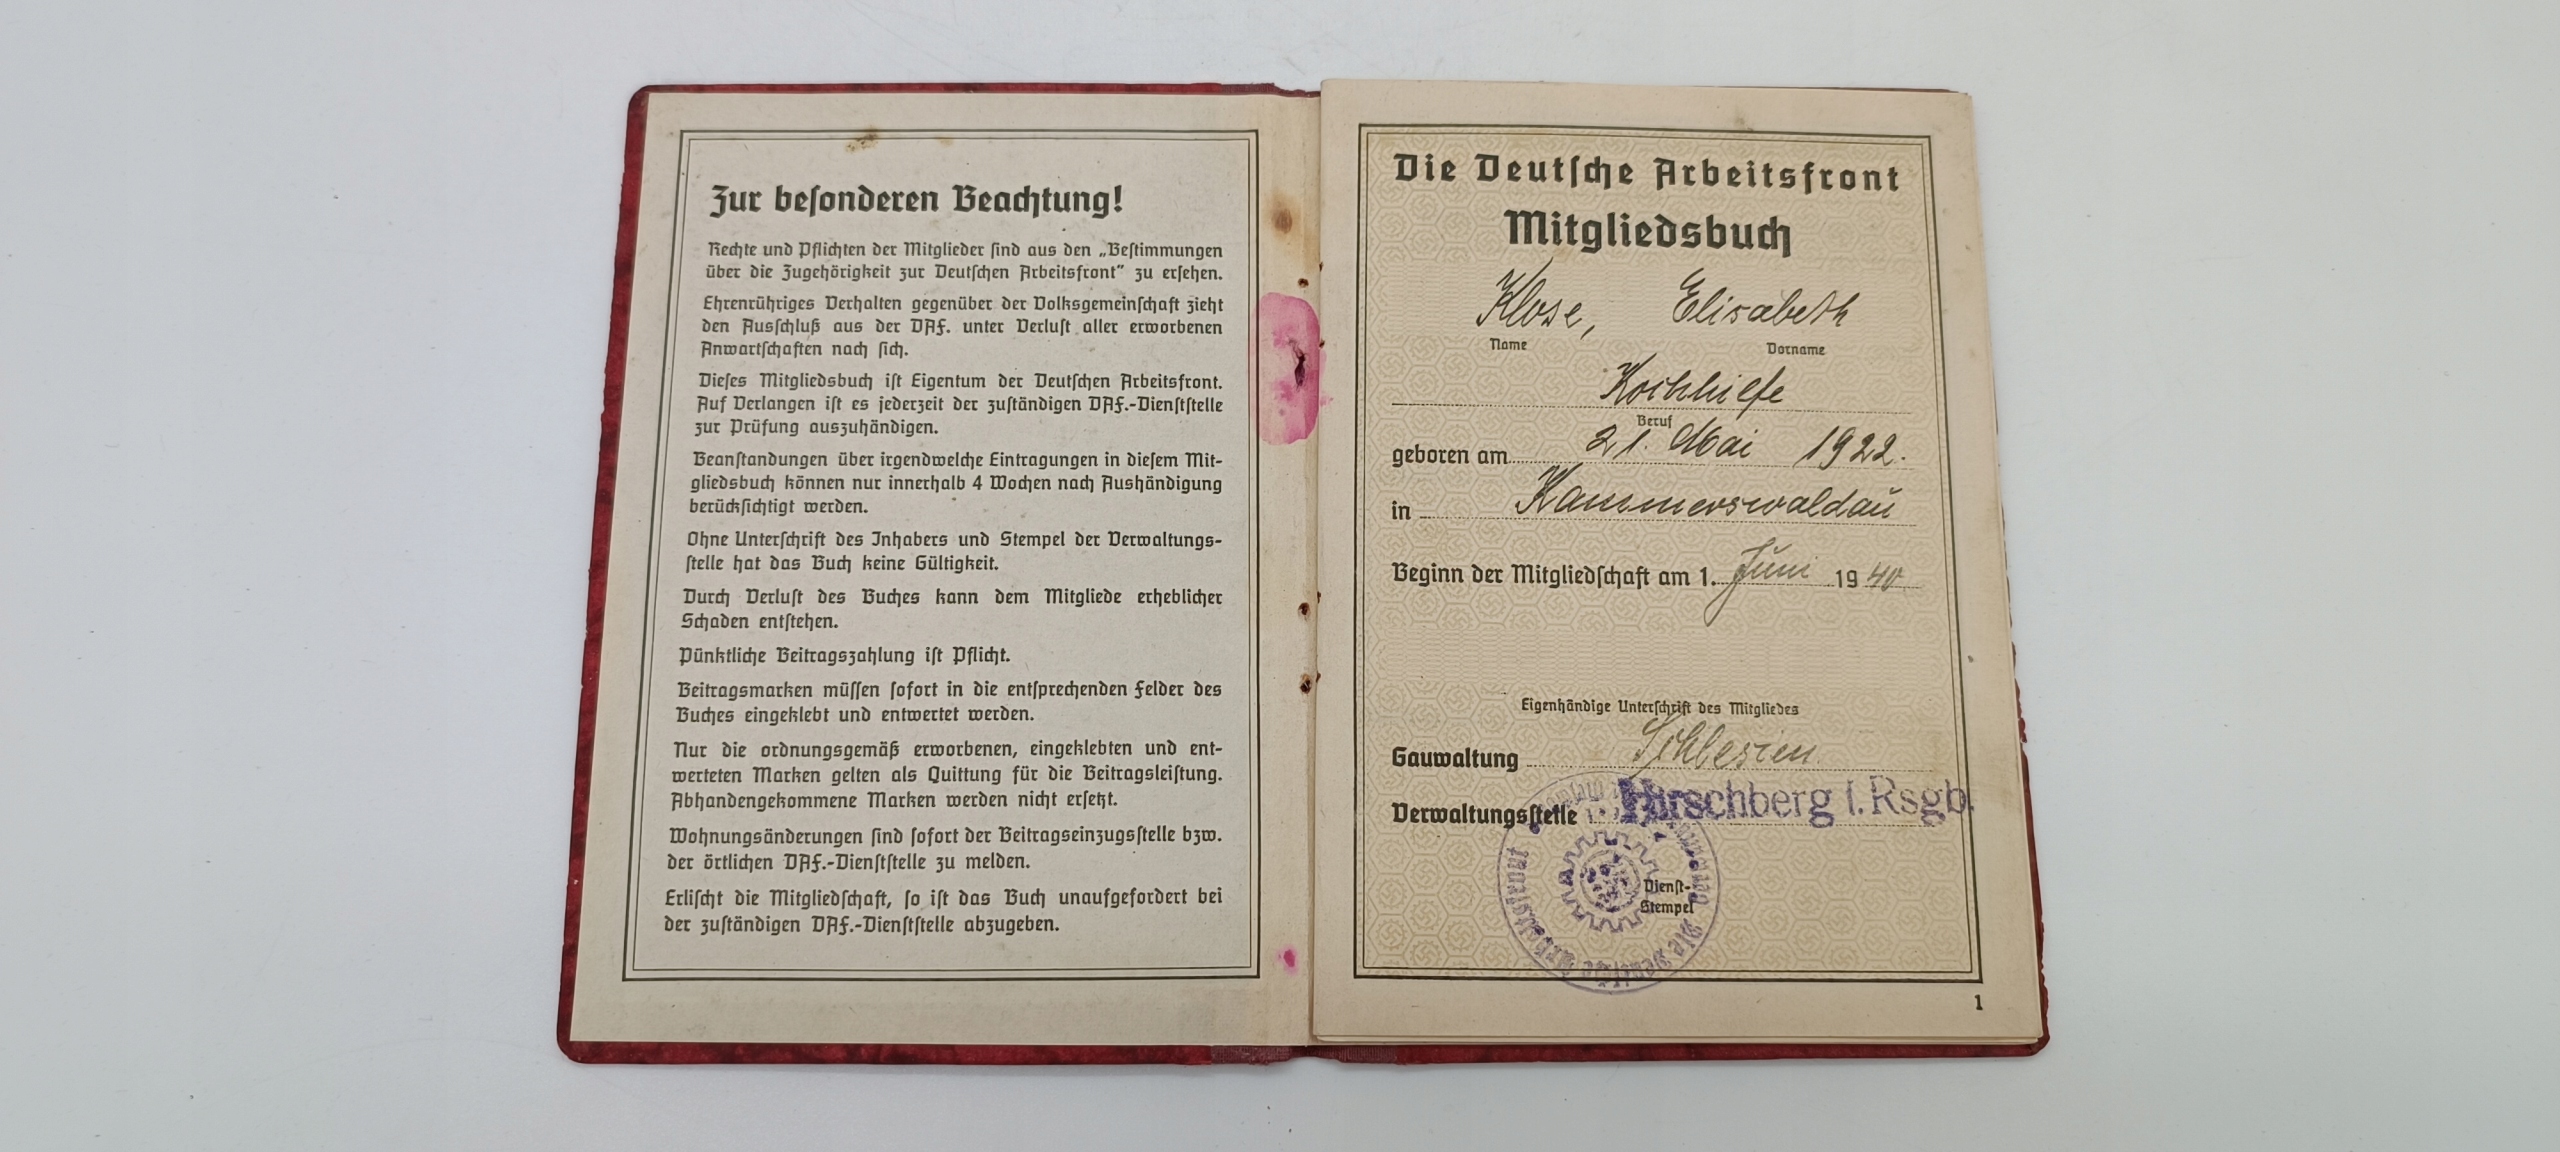 Zur besonderen Beachtung!
Rechte und Pflichten der Mitglieder sind aus den „Bestimmungen
über die Zugehörigkeit zur Deutschen Arbeitsfront“ zu ersehen.
Ehrenrühriges Verhalten gegenüber der Volksgemeinschaft zieht
den Ausschluß aus der DAF. unter Verlust aller erworbenen
Anwartschaften nach sich.
Dieses Mitgliedsbuch ist Eigentum der Deutschen Arbeitsfront.
Auf Verlangen ist es jederzeit der zuständigen DAF.-Dienststelle
zur Prüfung auszuhändigen.
Beanstandungen über irgendwelche Eintragungen in diesem Mit-
gliedsbuch können nur innerhalb 4 Wochen nach Aushändigung
berücksichtigt werden.
Ohne Unterschrift des Inhabers und Stempel der Verwaltungs-
stelle hat das Buch keine Gültigkeit.
Durch Verlust des Buches kann dem Mitgliede erheblicher
Schaden entstehen.
Pünktliche Beitragszahlung ist Pflicht.
Beitragsmarken müssen sofort in die entsprechenden Felder des
Buches eingeklebt und entwertet werden.
Nur die ordnungsgemäß erworbenen, eingeklebten und ent-
werteten Marken gelten als Quittung für die Beitragsleistung.
Abhandengekommene Marken werden nicht ersetzt.
Wohnungsänderungen sind sofort der Beitragseinzugsstelle bzw.
der örtlichen DAF.-Dienststelle zu melden.
Erlischt die Mitgliedschaft, so ist das Buch unaufgefordert bei
der zuständigen DAF.-Dienststelle abzugeben.
Die Deutsche Arbeitsfront
Mitgliedsbuch
Klose, Elisabeth
Name Vorname
Kochhilfe
Beruf
geboren am 21. Mai 1922.
in Kammerswaldau
Beginn der Mitgliedschaft am 1. Juni 1940
Eigenhändige Unterschrift des Mitgliedes
Gauwaltung Schlesien
Verwaltungsstelle Hirschberg i. Rsgb.
Dienst-
Stempel
Die Deutsche Arbeitsfront
1